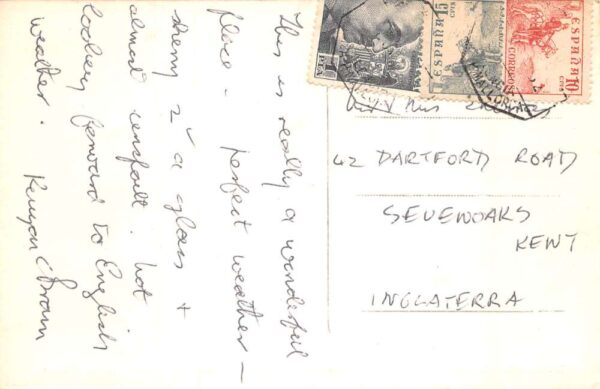 This is really a wonderful
place - perfect weather -
sherry 2ᵈ a glass +
almost unspoilt. Not
looking forward to English
weather.
ESPAÑA
15
CTS
CORREOS
ESPAÑA
10
CTS
MALLORCA
42 DARTFORD ROAD
SEVENOAKS
KENT
INGLATERRA